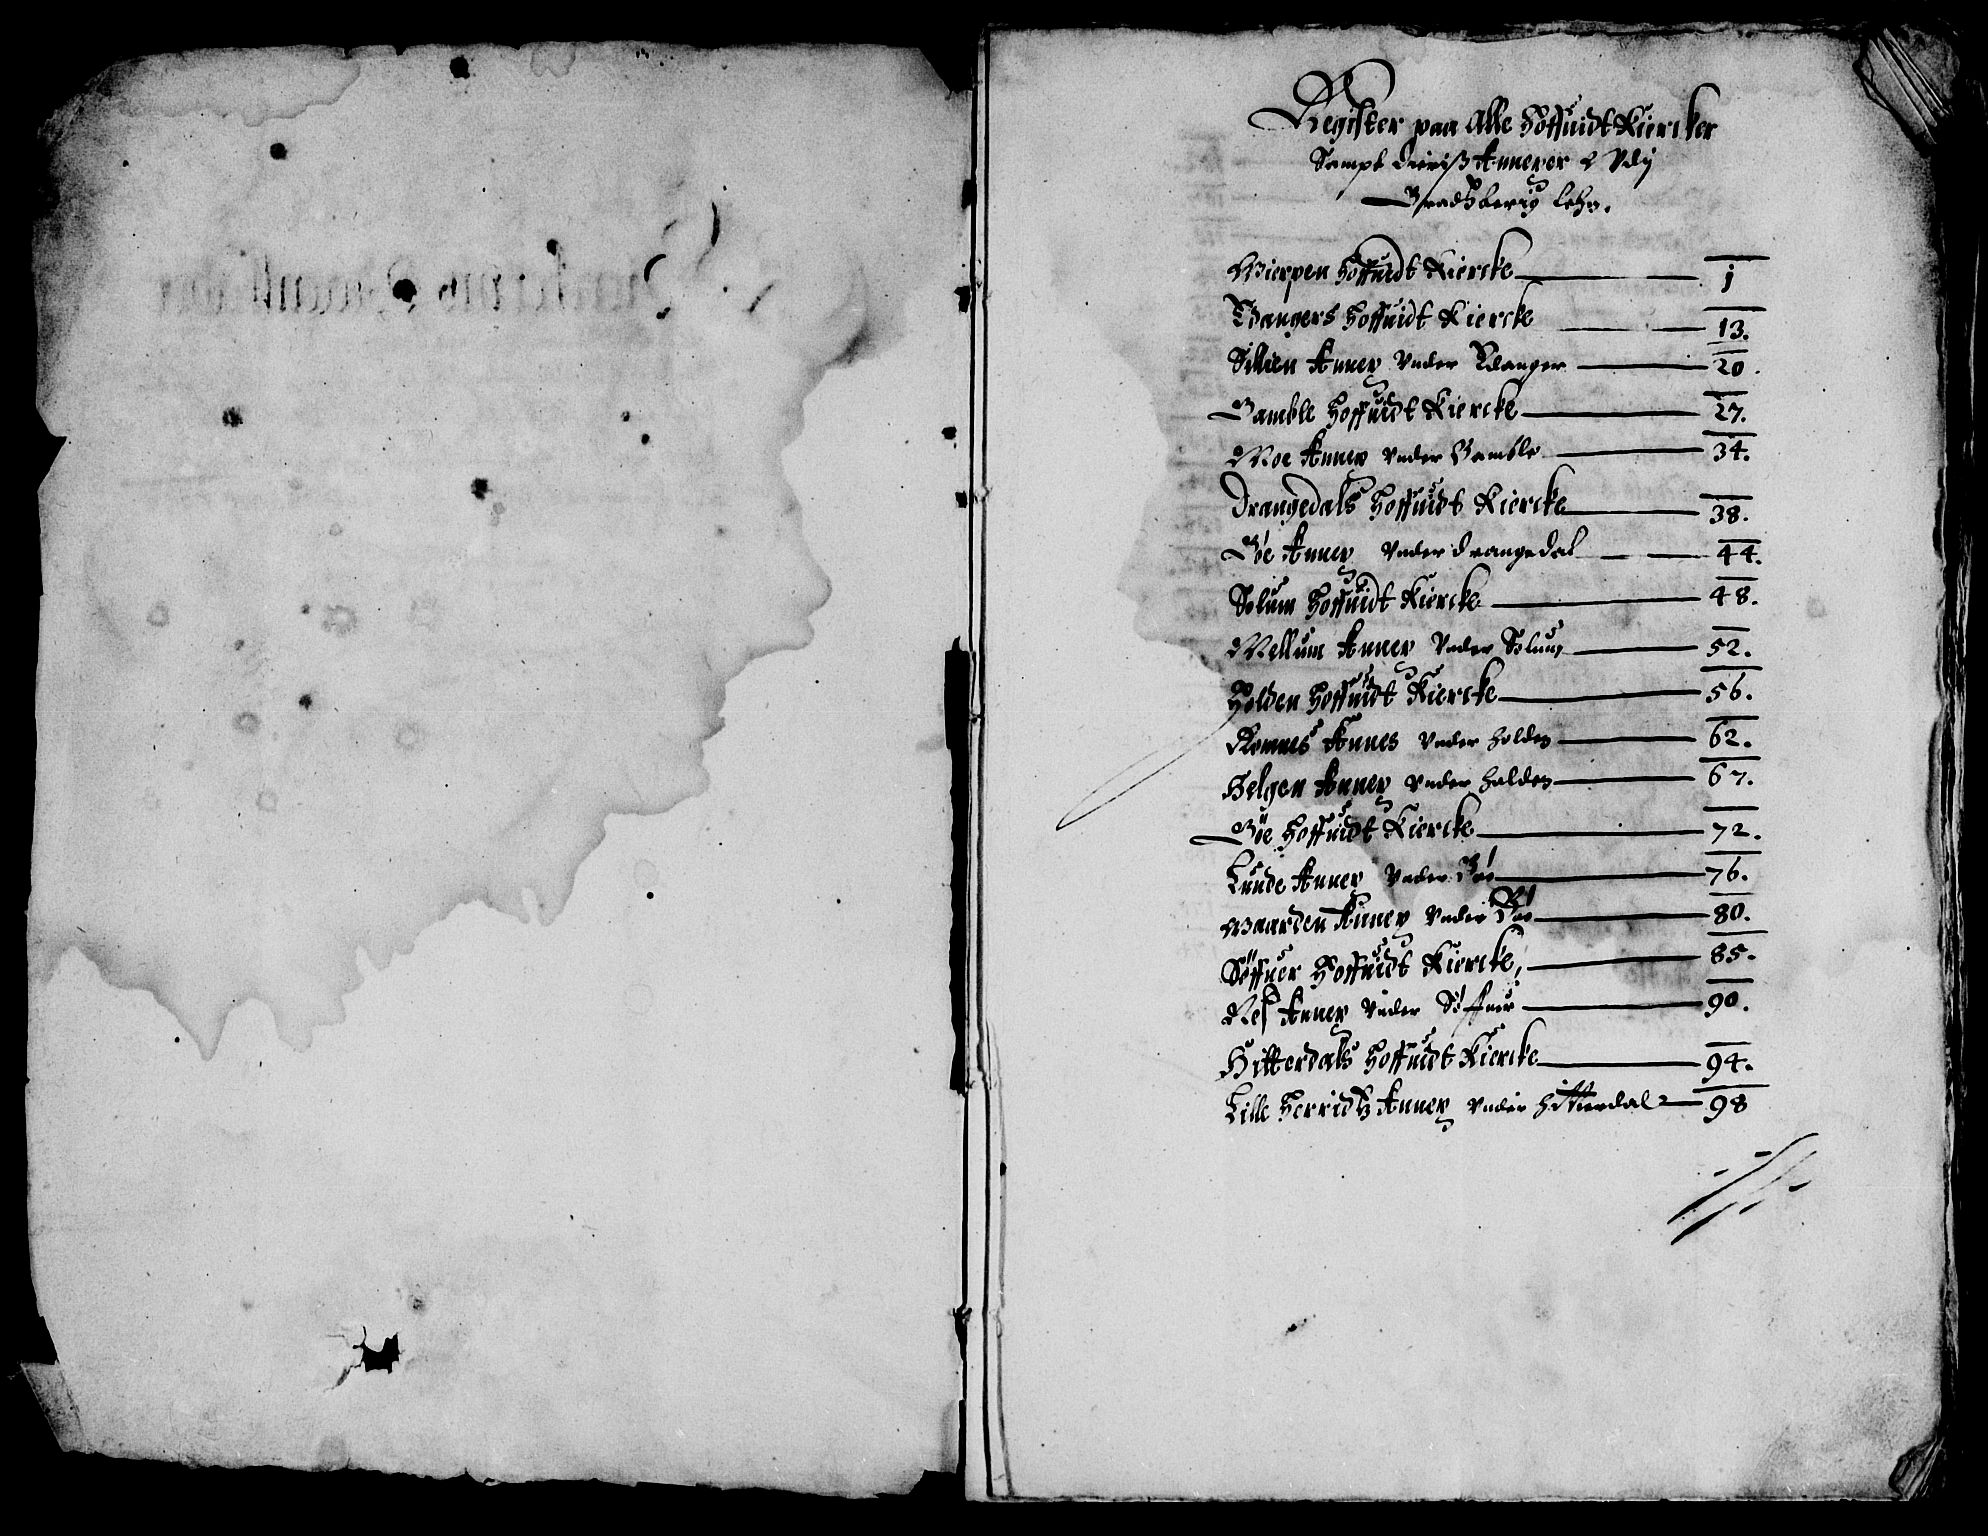 Register paa Alle Hoffuidt Kiercker
Sampt deriß Annexer Vdj
Bradsberig lehn.
Gierpen Hoffuidt Kiercke 1
Edangers Hoffuidt Kiercke 13.
Sillien Annex Vnder Edanger 20.
Bamble Hoffuidt Kiercke 27.
Moe Annex Vnder Bamble 34.
Drangedals Hoffuidt Kiercke 38.
Töe Annex Vnder Drangedal 44.
Solum Hoffuidt Kiercke 48.
Mellum Annex Vnder Solum 52.
Holden Hoffuidt Kiercke 56.
Romnes Annex Vnder Holden 62.
Helgen Annex Vnder Holden 67.
Böe Hoffuidt Kiercke 72.
Lunde Annex Vnder Böe 76.
Waarden Annex Vnder Böe 80.
Söffuer Hoffuidt Kiercke, 85.
Nes Annex Vnder Söffuer 90.
Hitterdals Hoffuidt Kiercke 94.
Lille Herridtz Annex Vnder Hitterdal 98